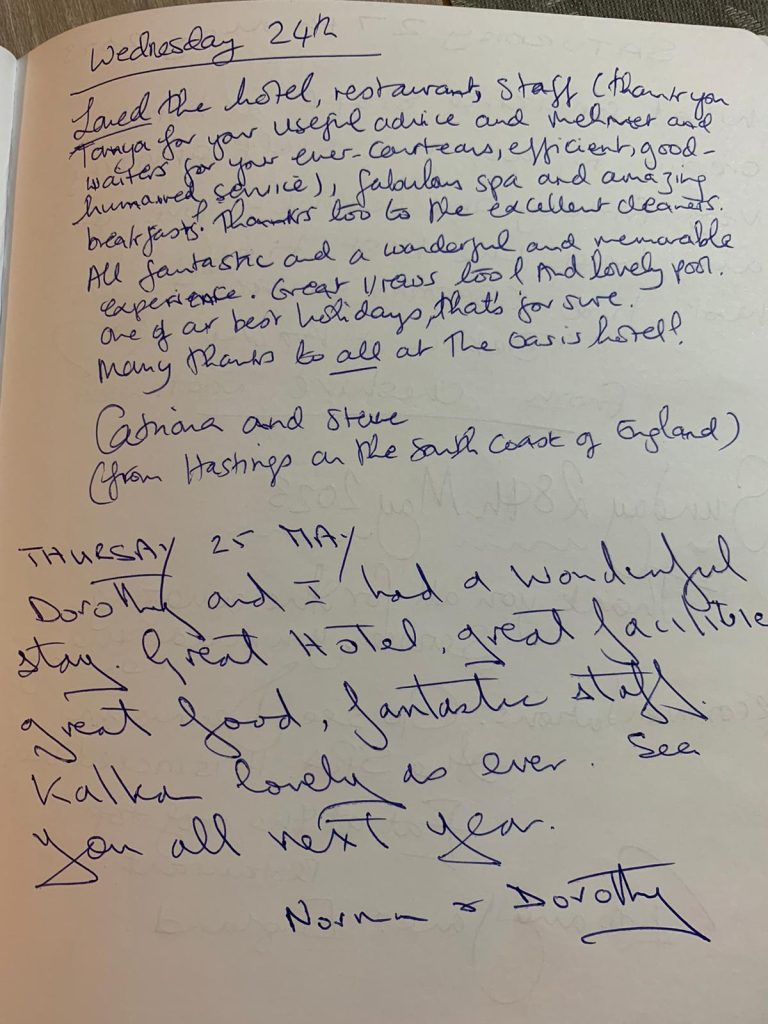 Wednesday 24th
Loved the hotel, restaurant, staff (thank you
Tanya for your useful advice and Mehmet and
waiters for your ever-courteous, efficient, good-
humoured service), fabulous spa and amazing
breakfasts. Thanks too to the excellent cleaners.
All fantastic and a wonderful and memorable
experience. Great views too! And lovely pool.
One of our best holidays, that's for sure.
Many thanks to all at the Oasis hotel!
Catriona and Steve
(from Hastings on the South Coast of England)
THURSAY 25 MAY
Dorothy and I had a wonderful
stay. Great Hotel, great facilitie
great food, fantastic staff.
Kalka lovely as ever. See
you all next year.
Norman & Dorothy